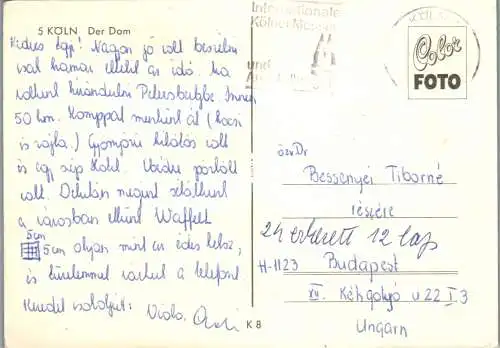 5 KÖLN Der Dom
Kedves Egp! Nagyon jó volt beszélni
csak hamar eltelt az idő. Ma
voltunk kirándulni Petersbergbe. Innen
50 km. Komppal mentünk át (kocsi
is rajta.) Gyönyörű kilátás volt
és egy szép Hotel. Vendég portölt
volt. Délután megint sétáltunk
a városban ettünk Waffelt
5cm
5cm olyan mint az édes keksz,
és türelemmel vártuk a telefont
Kendet csókoljuk: Viola,
K 8
Internationale
Kölner Messen
und
KÖLN
Color
FOTO
özv Dr
Bessenyei Tiborné
részére
24 érkezett 12 lap
H-1123 Budapest
XII. Kékgolyó u 22 I 3
Ungarn